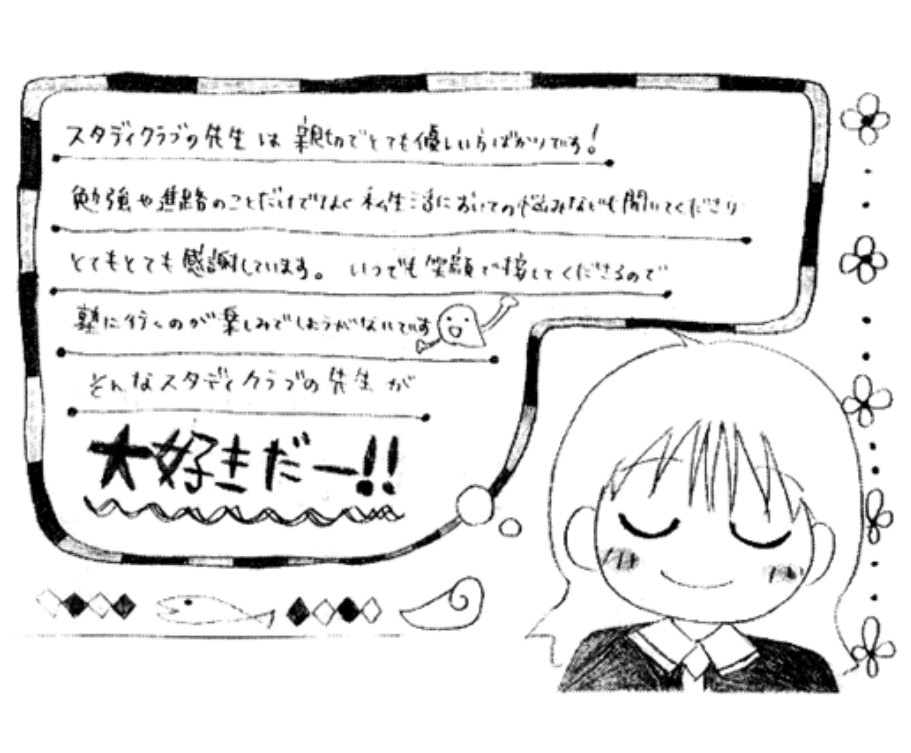 スタディクラブの先生は親切でとても優しい方ばかりです!
勉強や進路のことだけでなく私生活においての悩みなども聞いてくださり
とてもとても感謝しています。いつでも笑顔で接してくださるので
塾に行くのが楽しみでしょうがないです
そんなスタディクラブの先生が
大好きだー!!